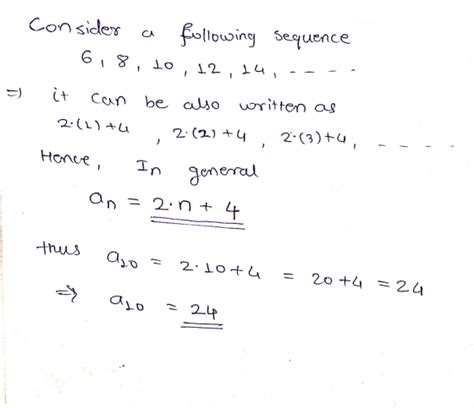 Consider a following sequence
6, 8, 10, 12, 14, - - - -
⇒ it can be also written as
2·(1)+4, 2·(2)+4, 2·(3)+4, - - - -
Hence, In general
an = 2·n + 4
thus a10 = 2·10+4 = 20+4 = 24
⇒ a10 = 24